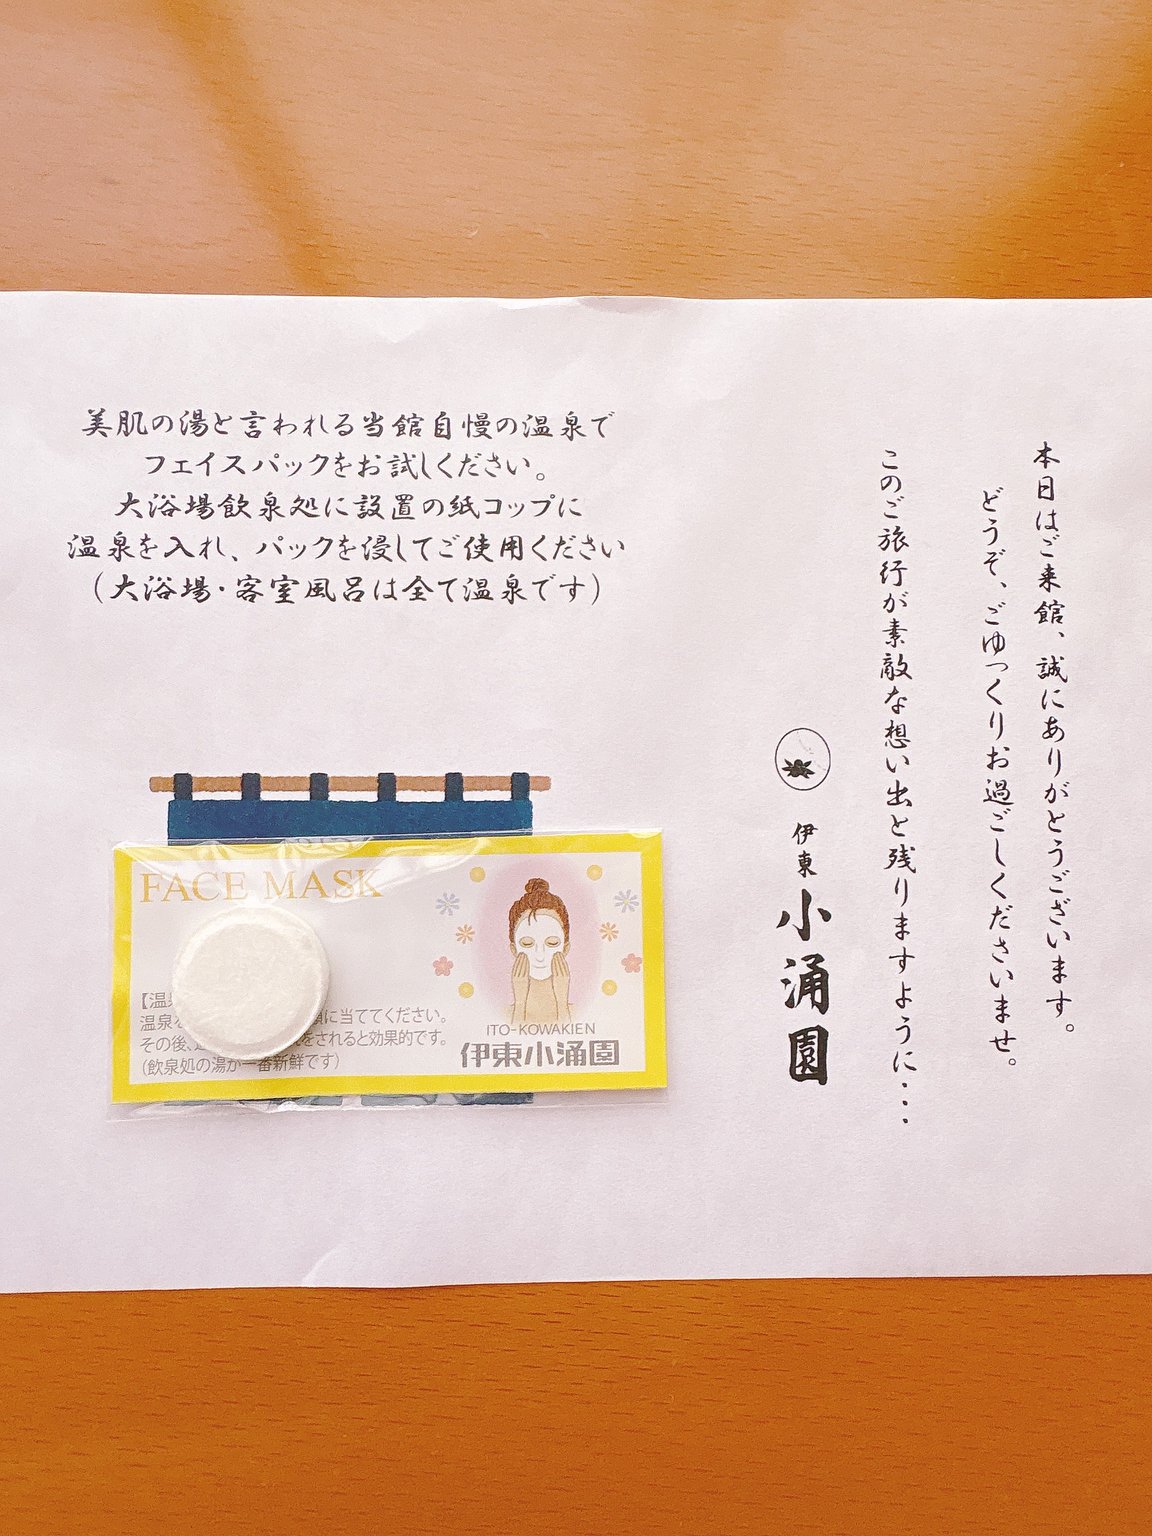 本日はご来館、誠にありがとうございます。
どうぞ、ごゆっくりお過ごしくださいませ。
このご旅行が素敵な想い出と残りますように・・・
伊東
小涌園
美肌の湯と言われる当館自慢の温泉で
フェイスパックをお試しください。
大浴場飲泉処に設置の紙コップに
温泉を入れ、パックを浸してご使用ください
（大浴場・客室風呂は全て温泉です）
FACE MASK
【温
温泉 に当ててください。
その後、 をされると効果的です。
(飲泉処の湯が一番新鮮です)
ITO-KOWAKIEN
伊東小涌園